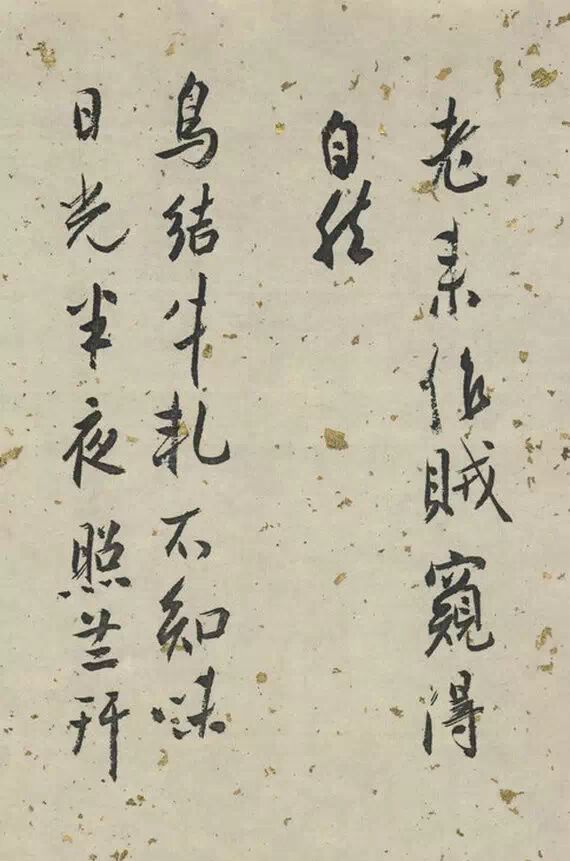 老来作贼窥得
自然
鸟结牛札不知味
日光半夜照兰玕